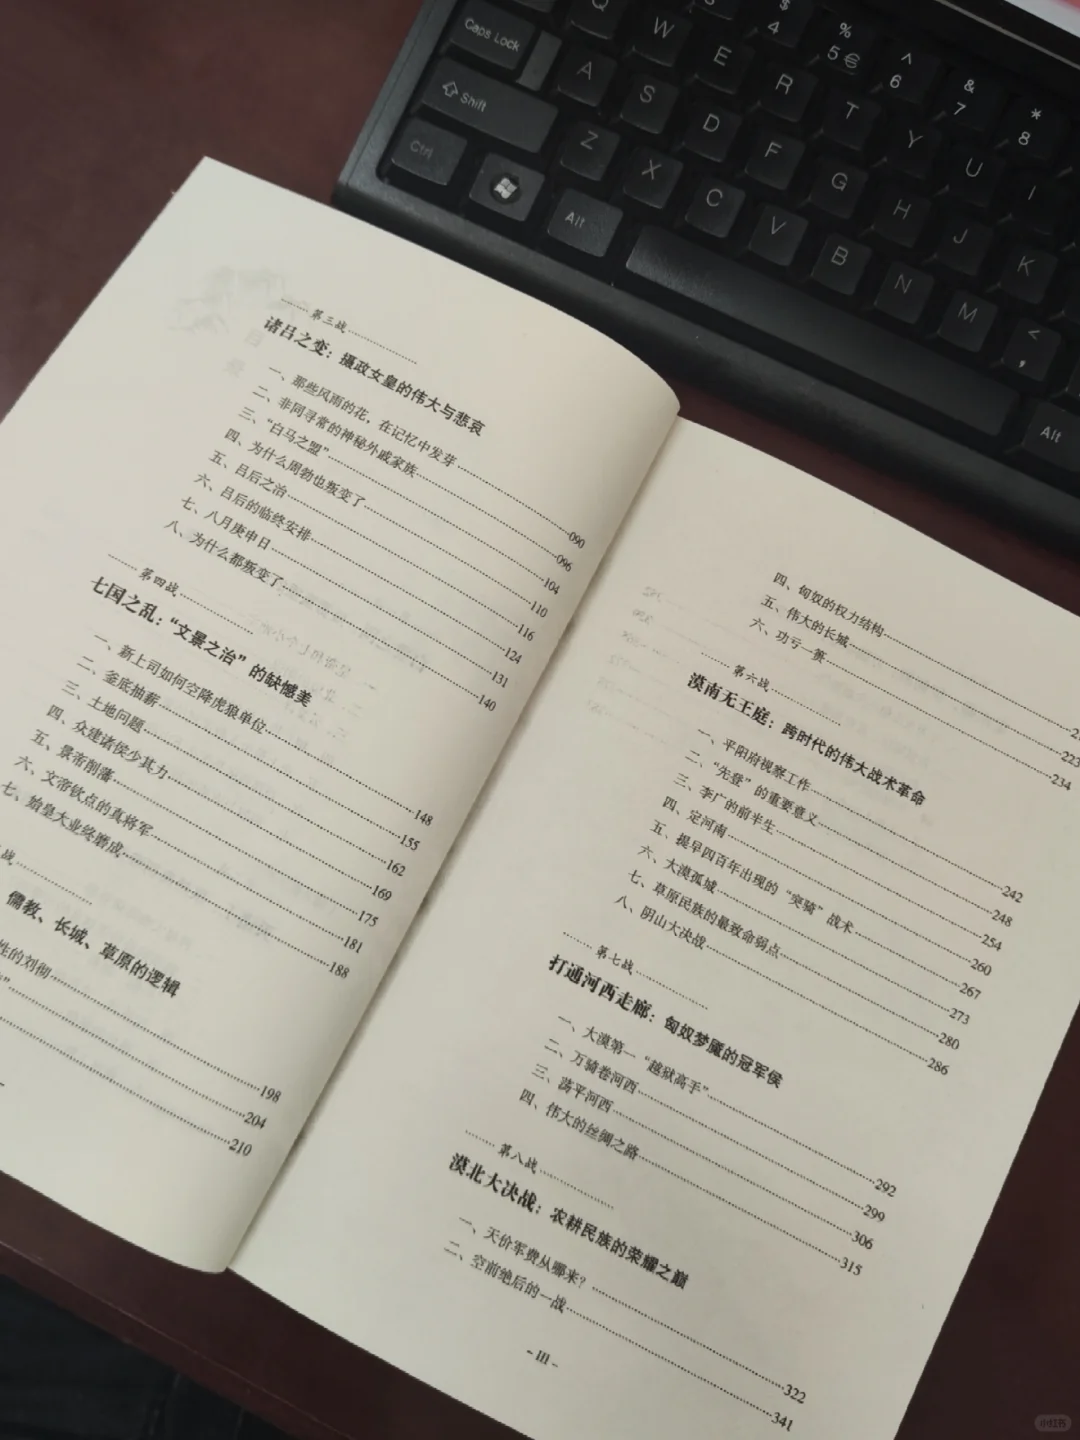 第三战
诸吕之变：摄政女皇的伟大与悲哀
一、那些风雨的花，在记忆中发芽 090
二、非同寻常的神秘外戚家族 096
三、“白马之盟” 104
四、为什么周勃也叛变了 110
五、吕后之治 116
六、吕后的临终安排 124
七、八月庚申日 131
八、为什么都叛变了 140
第四战
七国之乱：“文景之治”的缺憾美
一、新上司如何空降虎狼单位 148
二、釜底抽薪 155
三、土地问题 162
四、众建诸侯少其力 169
五、景帝削藩 175
六、文帝钦点的真将军 181
七、始皇大业终磨成 188
战
儒教、长城、草原的逻辑
性的刘彻 198
” 204
210
四、匈奴的权力结构
五、伟大的长城 223
六、功亏一篑 234
第六战
漠南无王庭：跨时代的伟大战术革命
一、平阳府视察工作 242
二、“先登”的重要意义 248
三、李广的前半生 254
四、定河南 260
五、提早四百年出现的“突骑”战术 267
六、大漠孤城 273
七、草原民族的最致命弱点 280
八、阴山大决战 286
第七战
打通河西走廊：匈奴梦魇的冠军侯
一、大漠第一“越狱高手” 292
二、万骑卷河西 299
三、荡平河西 306
四、伟大的丝绸之路 315
第八战
漠北大决战：农耕民族的荣耀之巅
一、天价军费从哪来？ 322
二、空前绝后的一战 341
- III -
Caps Lock
Q W 4 $ 5 % € 6 ^ 7 & 8 *
A S E R T Y U I
Shift
Z X D F G H J K
Ctrl
Alt
C V B N M < ,
Alt
小红书